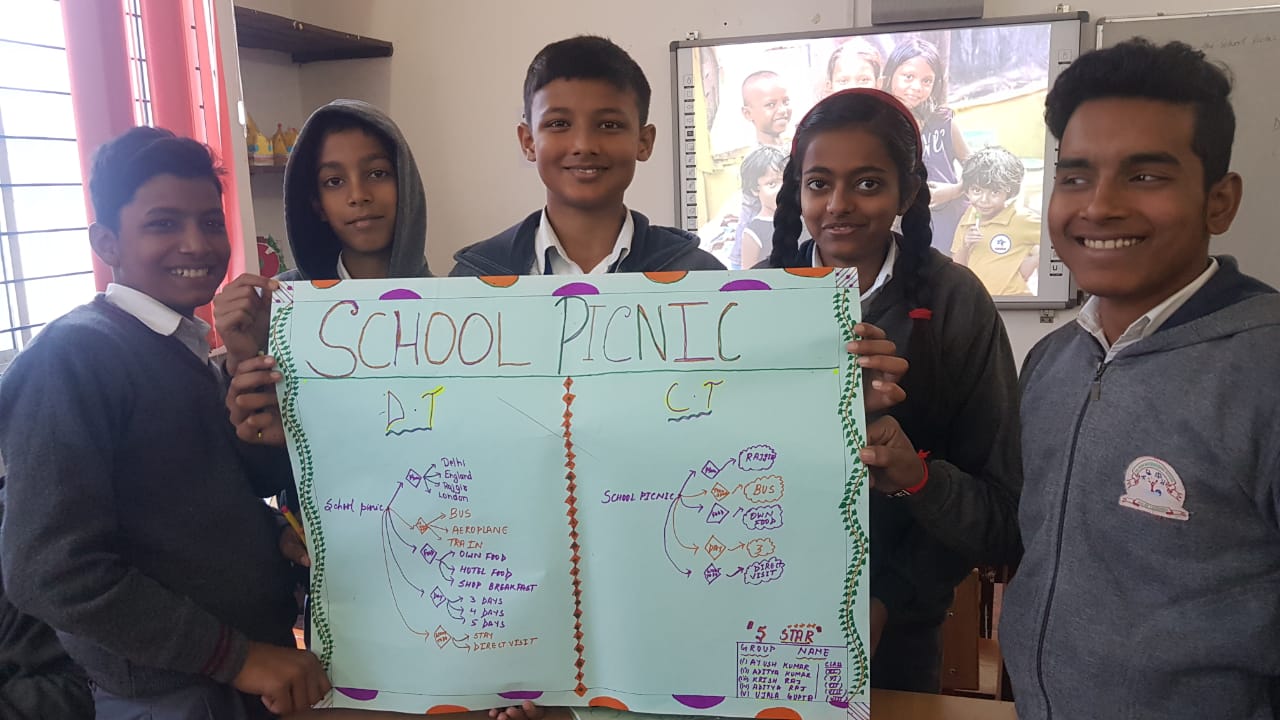 SCHOOL PICNIC
D.T
School picnic
Place
Delhi
England
Rajgir
London
BUS
AEROPLANE
TRAIN
Food
OWN FOOD
HOTEL FOOD
SHOP BREAKFAST
Day
3 DAYS
4 DAYS
5 DAYS
STAY
DIRECT VISIT
C.T
SCHOOL PICNIC
RAJGIR
BUS
Food
OWN FOOD
DAY
3
DIRECT VISIT
"5 STAR"
GROUP NAME CLASS
(i) AYUSH KUMAR
(ii) ADITYA KUMAR
(iii) KRISH RAJ
(iv) ADITYA RAJ
(v) UJALA GUPTA